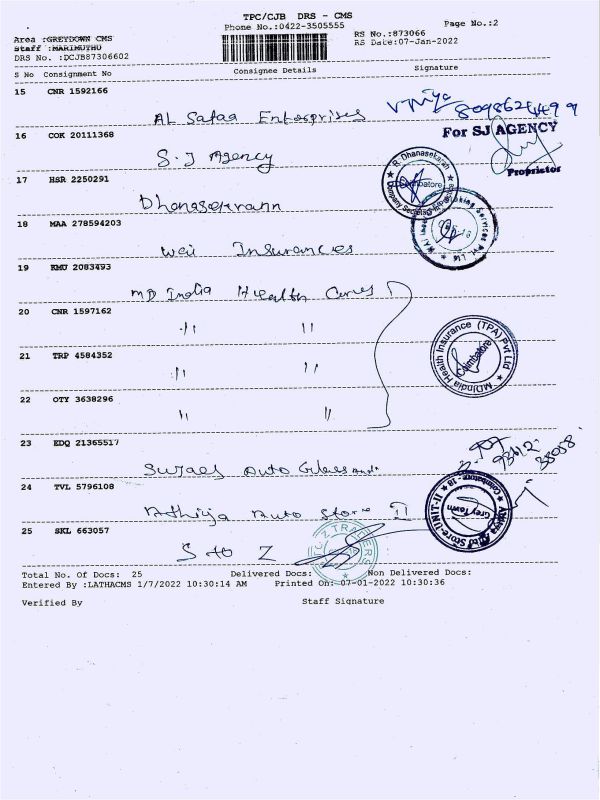 TPC/CJB DRS - CMS
Phone No.:0422-3505555
Page No.:2
Area :GREYDOWN CMS
RS No.:873066
Staff :MARIMUTHU
RS Date:07-Jan-2022
DRS No. :DCJB87306602
S No Consignment No Consignee Details Signature
15 CNR 1592166
AL Safaa Enterprises
16 COK 20111368
For SJ AGENCY
S.J Agency
Proprietor
17 HSR 2250291
R. Dhanasekaran
Company Secretary
Coimbatore
18 MAA 278594203
Insurances
19 KMU 2083493
MD India Health Cares
20 CNR 1597162
" "
MDIndia Health Insurance (TPA) Pvt Ltd
Coimbatore
21 TRP 4584352
" "
22 OTY 3638296
" "
23 EDQ 21365517
Auto
24 TVL 5796108
Auto Store II
Auto Store-UNIT-II
Grey Town
Coimbatore - 18
25 SKL 663057
S to Z
Total No. Of Docs: 25 Delivered Docs: Non Delivered Docs:
Entered By :LATHACMS 1/7/2022 10:30:14 AM Printed On: 07-01-2022 10:30:36
Verified By Staff Signature